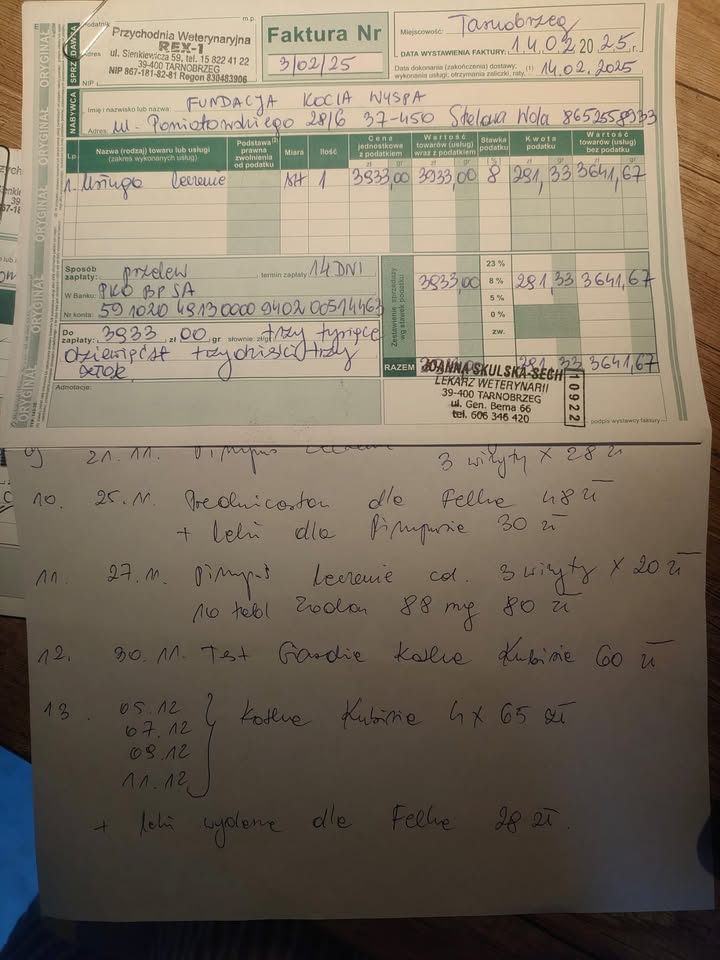 ORYGINAŁ ORYGINAŁ ORYGINAŁ ORYGINAŁ
SPRZEDAWCA
Podatnik
m.p.
Adres
NIP
Przychodnia Weterynaryjna
REX-1
ul. Sienkiewicza 59, tel. 15 822 41 22
39-400 TARNOBRZEG
NIP 867-181-82-81 Regon 830483906
Faktura Nr
3/02/25
Miejscowość: Tarnobrzeg
DATA WYSTAWIENIA FAKTURY: 14.02.2025 r.
Data dokonania (zakończenia) dostawy,
wykonania usługi, otrzymania zaliczki, raty, (1) 14.02.2025
NABYWCA
Imię i nazwisko lub nazwa: FUNDACJA KOCIA WYSPA
Adres: ul. Poniatowskiego 28/6 37-450 Stalowa Wola 8652558933
Lp. Nazwa (rodzaj) towaru lub usługi (zakres wykonanych usług) Podstawa prawna zwolnienia od podatku (2) Miara Ilość Cena jednostkowa z podatkiem Wartość towarów (usług) wraz z podatkiem Stawka podatku Kwota podatku Wartość towarów (usług) bez podatku
zł gr zł gr % zł gr zł gr
1. Usługa leczenie 1 3933,00 3933,00 8 291,33 3641,67
Sposób zapłaty: przelew termin zapłaty 14 DNI
W Banku: PKO BP SA
Nr konta: 59 1020 4913 0000 9402 0051 4463
Do zapłaty: 3933 zł 00 gr słownie: zł/gr trzy tysiące
dziewięćset trzydzieści trzy
złote
Zestawienie sprzedaży wg stawek podatku
23 %
3933,00 8 % 291,33 3641,67
5 %
0 %
zw.
RAZEM 291,33 3641,67
Adnotacje:
JOANNA SKULSKA-SECH
LEKARZ WETERYNARII
39-400 TARNOBRZEG
ul. Gen. Berna 66
tel. 606 346 420
10922
podpis wystawcy faktury
9) 21.11. Pimpuś leczenie 3 wizyty x 28 zł
10. 25.11. Prednicorton dla Felka 48 zł
+ leki dla Pimpusia 30 zł
11. 27.11. Pimpuś leczenie cd. 3 wizyty x 20 zł
10 tabl 88 mg 80 zł
12. 30.11. Test Giardie Kotka Kubisie 60 zł
13. 05.12
07.12
09.12
11.12
Kotka Kubisie 4 x 65 zł
+ leki wydane dla Felka 28 zł.